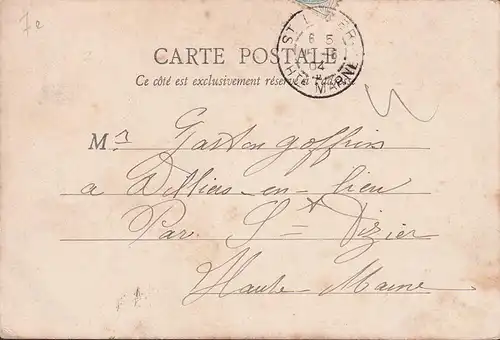 7e
ST DIZIER
6 5
04
HTE MARNE
CARTE POSTALE
Ce côté est exclusivement réservé à l'adresse
Mr Gaston Goffin
a Villiers-en-lieu
Par St = Dizier
Haute-Marne